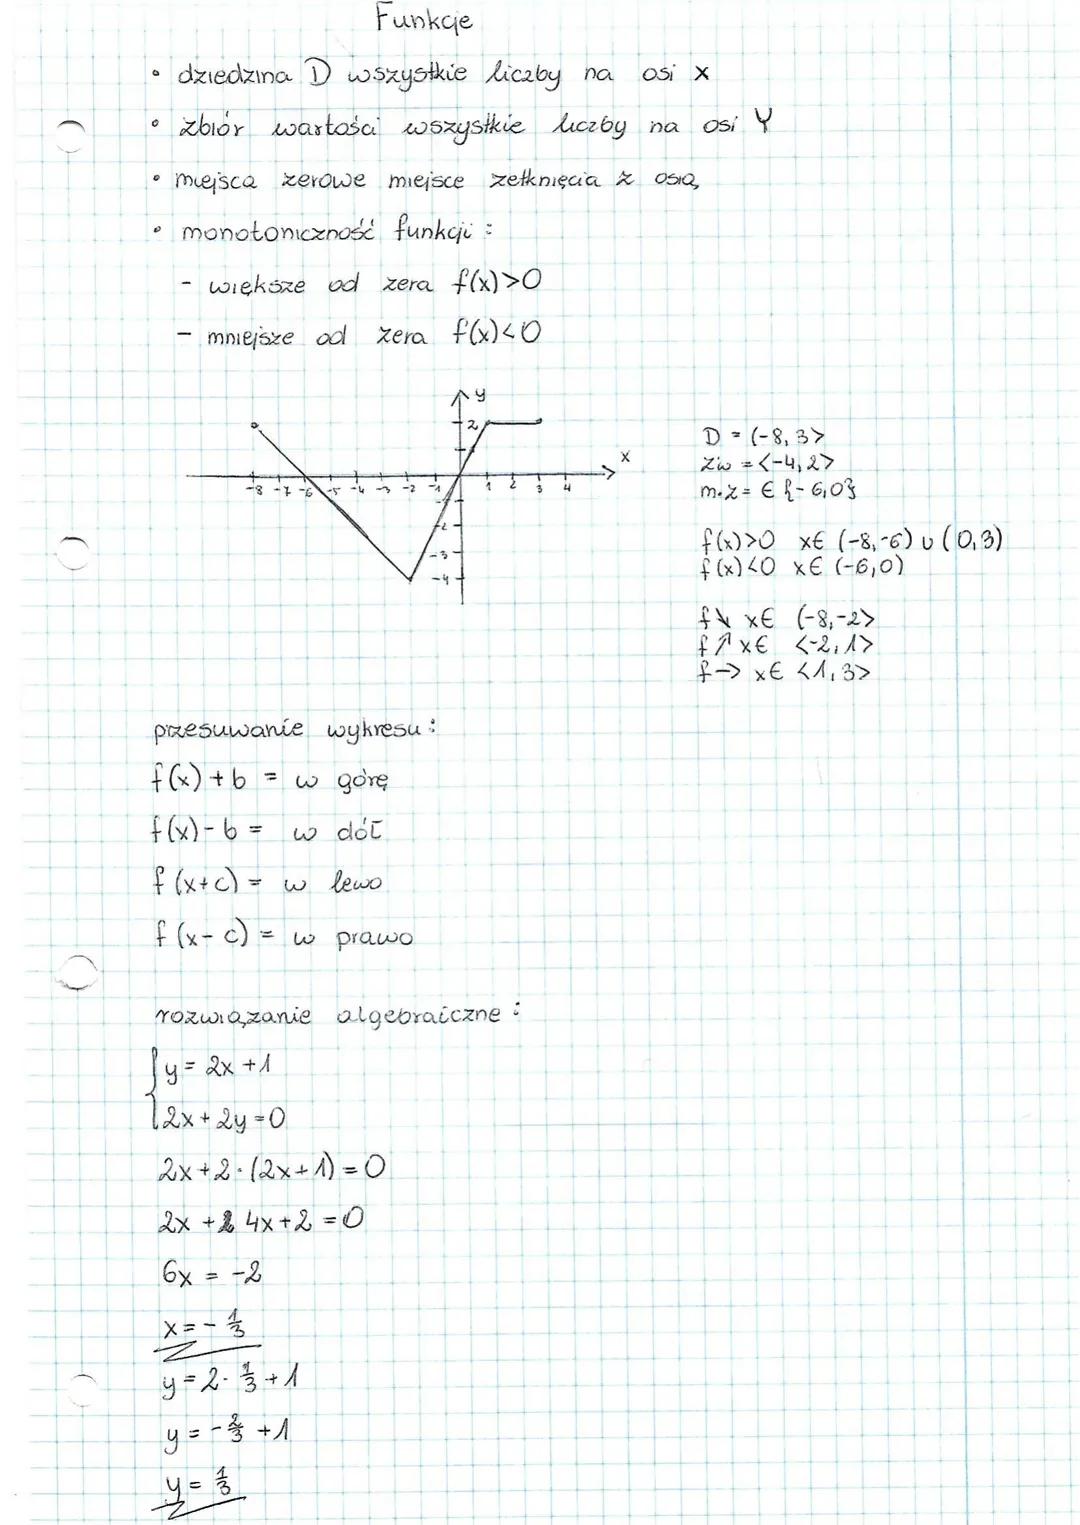 Funkcje
• dziedzina D wszystkie liczby na osi x
• zbiór wartości wszystkie liczby na osi Y
• miejsca zerowe miejsce zetknięcia z osią
• monotoniczność funkcji :
- większe od zera f(x)>0
- mniejsze od zera f(x)<0
y
2
x
-8 -7 -6 -5 -4 -3 -2 -1 1 2 3 4
-1
-2
-3
-4
D = (-8, 3>
Zw = <-4, 2>
m.z = ∈ {-6,0}
f(x)>0 x∈ (-8,-6) ∪ (0,3)
f(x)<0 x∈ (-6,0)
f↘ x∈ (-8,-2>
f↗ x∈ <-2,1>
f→ x∈ <1,3>
przesuwanie wykresu :
f(x)+b = w górę
f(x)-b = w dół
f(x+c) = w lewo
f(x-c) = w prawo
rozwiązanie algebraiczne :
{y = 2x +1
{2x + 2y = 0
2x + 2 · (2x + 1) = 0
2x + 4x + 2 = 0
6x = -2
x = - 1/3
y = 2 · 1/3 + 1
y = - 2/3 + 1
y = 1/3